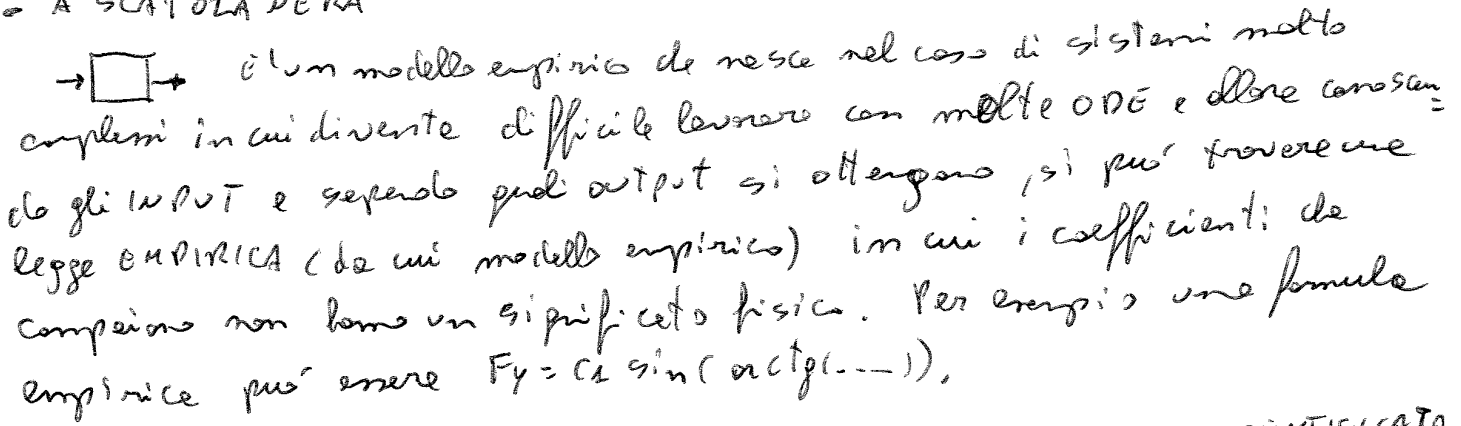 - A SCATOLA NERA
È un modello empirico che nasce nel caso di sistemi molto
complessi in cui diventa difficile lavorare con molte ODE e allora conoscen=
do gli INPUT e sapendo quali output si ottengono, si può trovare una
legge EMPIRICA (da cui modello empirico) in cui i coefficienti che
compaiono non hanno un significato fisico. Per esempio una formula
empirica può essere Fy = C1 sin( arctg(----)).